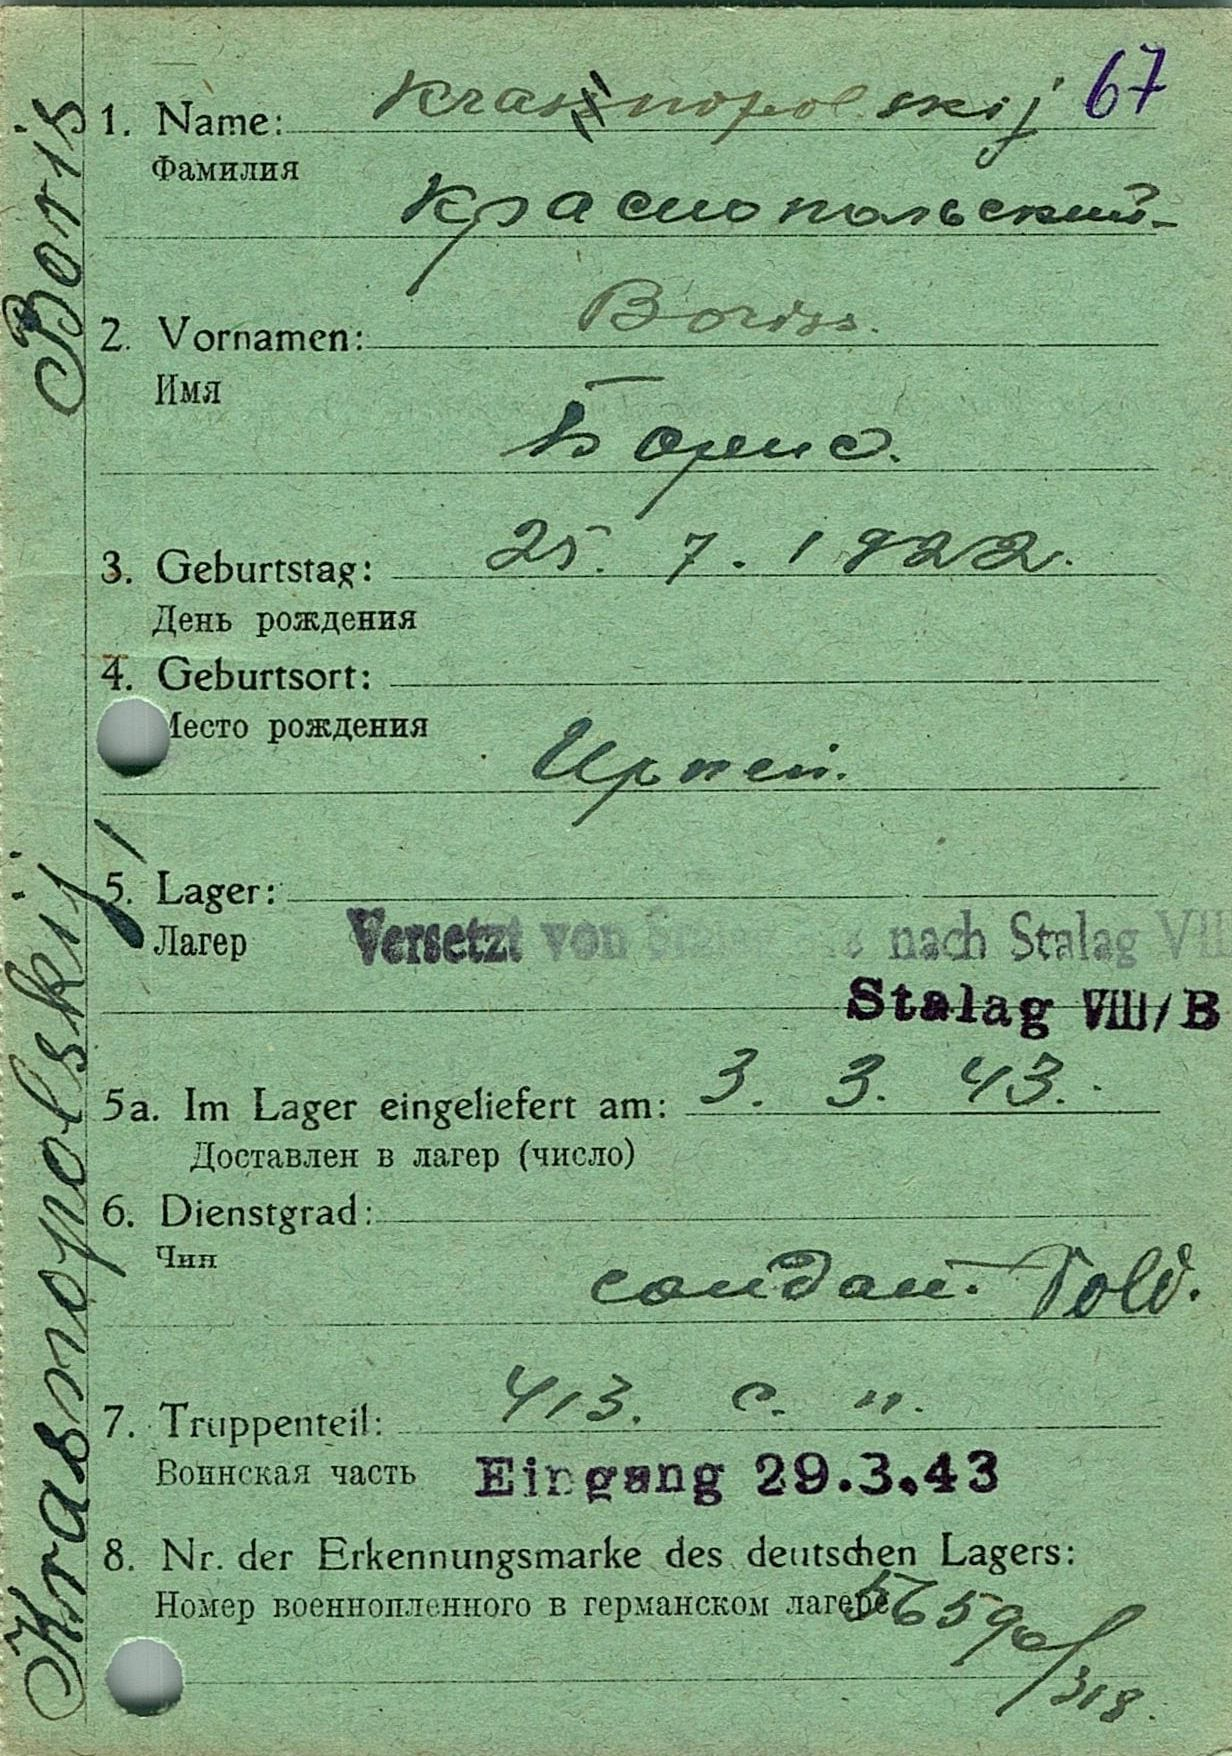 Krasnopolskij 67
1. Name:
Фамилия
Краснопольский
Boriss.
2. Vornamen:
Имя
Борис.
3. Geburtstag: 25. 7. 1922.
День рождения
4. Geburtsort:
Место рождения
Ирпен.
5. Lager:
Лагер
Versetzt von nach Stalag VII
Stalag VIII/B
5a. Im Lager eingeliefert am: 3. 3. 43.
Доставлен в лагер (число)
6. Dienstgrad:
Чин
солдат. Sold.
7. Truppenteil: 413. с. п.
Воинская часть
Eingang 29.3.43
8. Nr. der Erkennungsmarke des deutschen Lagers:
Номер военнопленного в германском лагере
56590/318.
Krasnopolskij Boris